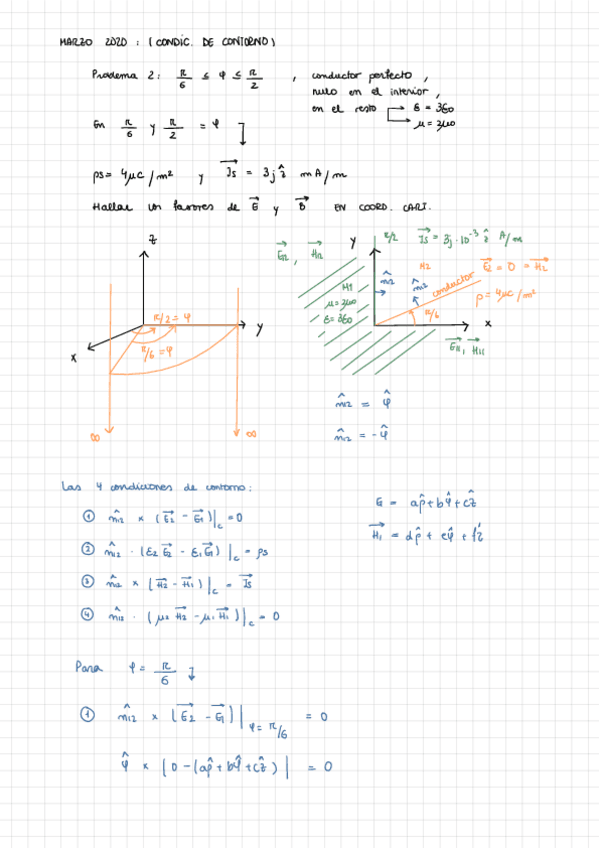 MARZO 2020 : (CONDIC. DE CONTORNO)
Problema 2: π/6 ≤ φ ≤ π/2 , conductor perfecto ,
nulo en el interior,
en el resto → ε = 3ε0
→ μ = 3μ0
En π/6 y π/2 = φ
ρs = 4μC/m² y Js = 3j ẑ mA/m
Hallar los favores de E y B EN COORD. CART.
z
y
x
π/2 = φ
π/6 = φ
∞
∞
E12 , H12
y
π/2
Js = 3j·10⁻³ ẑ A/m
H1
μ = 3μ0
ε = 3ε0
n̂12
n̂12
H2
conductor
E2 = 0 = H2
ρ = 4μC/m²
π/6
x
E11, H11
n̂12 = φ̂
n̂12 = -φ̂
Las 4 condiciones de contorno:
① n̂12 × (E2 - E1)|c = 0
② n̂12 · (ε2 E2 - ε1 E1)|c = ρs
③ n̂12 × (H2 - H1)|c = Js
④ n̂12 · (μ2 H2 - μ1 H1)|c = 0
E = aρ̂ + bφ̂ + cẑ
H1 = dρ̂ + eφ̂ + fẑ
Para φ = π/6
① n̂12 × (E2 - E1)|φ = π/6 = 0
φ̂ × |0 - (aρ̂ + bφ̂ + cẑ)| = 0